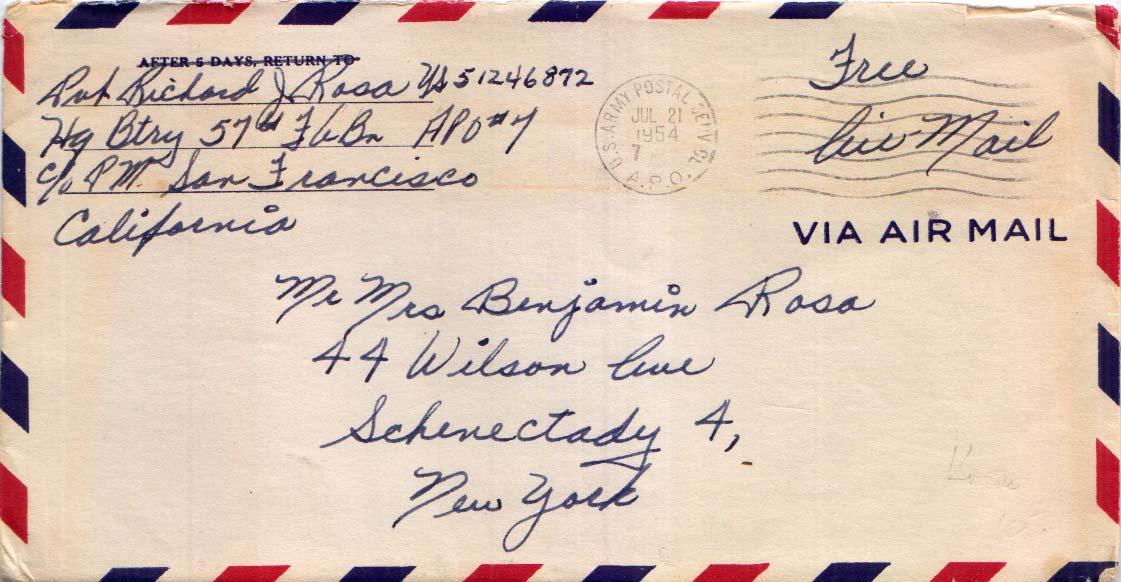 AFTER 5 DAYS, RETURN TO
Pvt Richard J. Rosa US 51246872
Hq Btry 57th FA Bn APO #7
c/o P.M. San Francisco
California
U.S. ARMY POSTAL SERVICE
JUL 21
1954
7
A.P.O.
Free
Air Mail
VIA AIR MAIL
Mr Mrs Benjamin Rosa
44 Wilson Ave
Schenectady 4,
New York